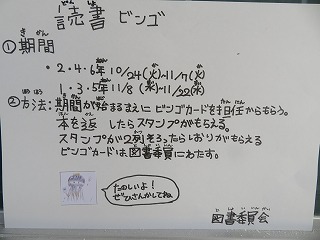 読書ビンゴ
①期間
2・4・6年 10/24(火)~11/7(火)
1・3・5年 11/8(水)~11/22(水)
②方法：期間が始まるまえにビンゴカードを担任からもらう。
本を返したらスタンプがもらえる。
スタンプが2列そろったらしおりがもらえる
ビンゴカードは図書委員にわたす。
たのしいよ！
ぜひさんかしてね
図書委員会